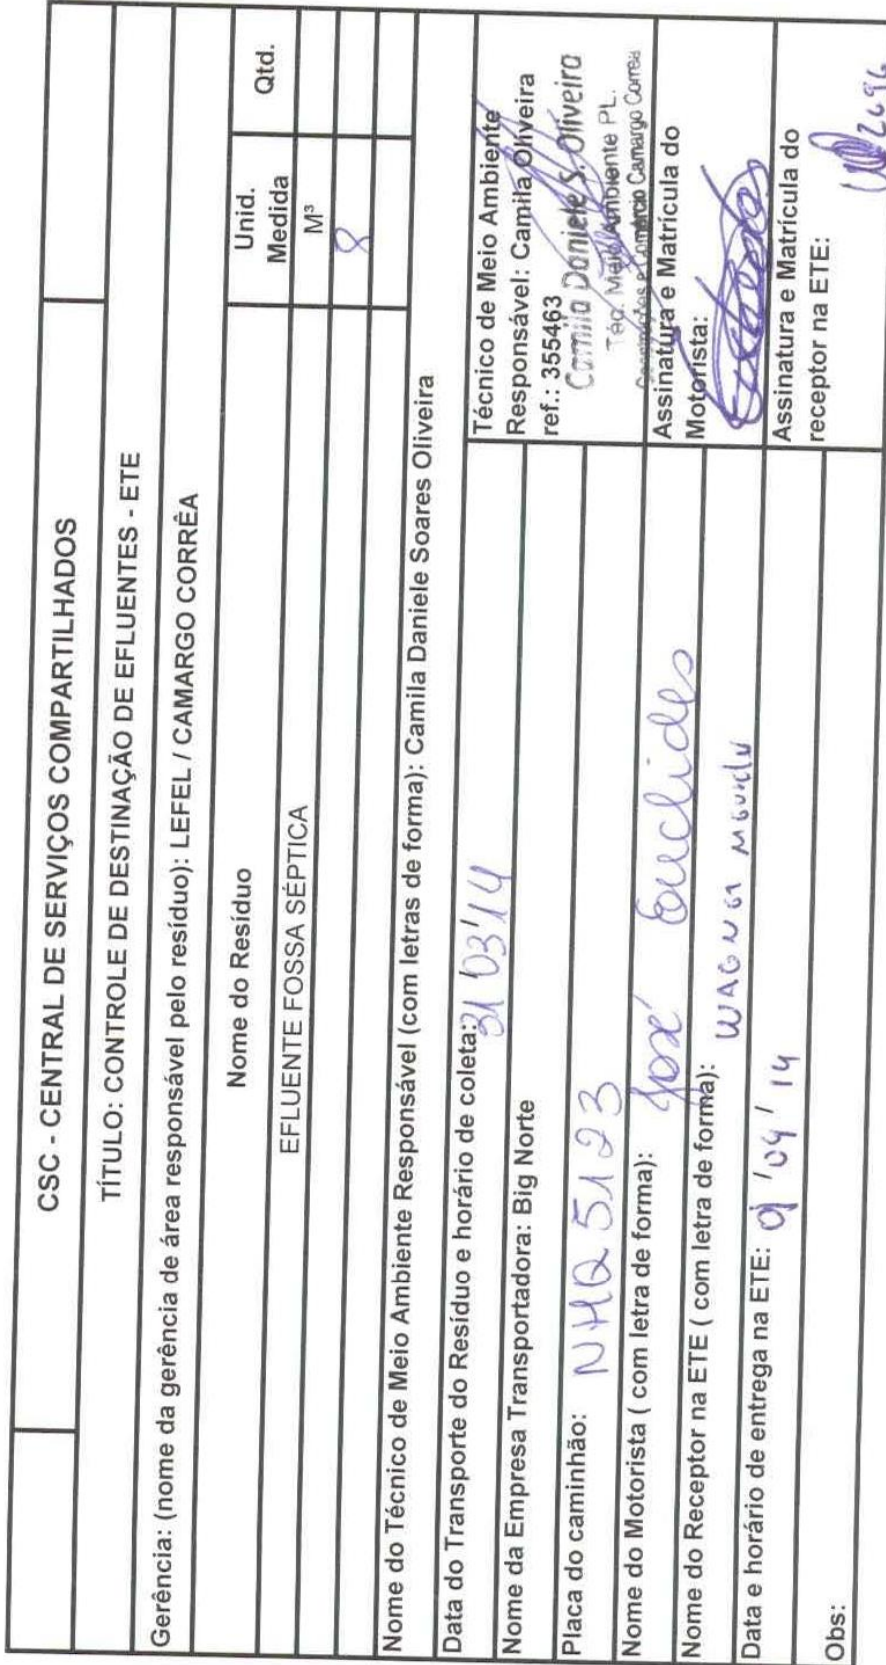 CSC - CENTRAL DE SERVIÇOS COMPARTILHADOS
TÍTULO: CONTROLE DE DESTINAÇÃO DE EFLUENTES - ETE
Gerência: (nome da gerência de área responsável pelo resíduo): LEFEL / CAMARGO CORRÊA
Nome do Resíduo
Unid. Medida
Qtd.
EFLUENTE FOSSA SÉPTICA
M³
8
Nome do Técnico de Meio Ambiente Responsável (com letras de forma): Camila Daniele Soares Oliveira
Data do Transporte do Resíduo e horário de coleta: 31/03/14
Nome da Empresa Transportadora: Big Norte
Placa do caminhão: NHQ 5123
Nome do Motorista ( com letra de forma): José Euclides
Nome do Receptor na ETE ( com letra de forma): WAGNER
Data e horário de entrega na ETE: 01/04/14
Obs:
Técnico de Meio Ambiente
Responsável: Camila Oliveira
ref.: 355463
Camila Daniele S. Oliveira
Téc. Meio Ambiente PL.
Construções e Comércio Camargo Correa
Assinatura e Matrícula do
Motorista:
Assinatura e Matrícula do
receptor na ETE:
2696